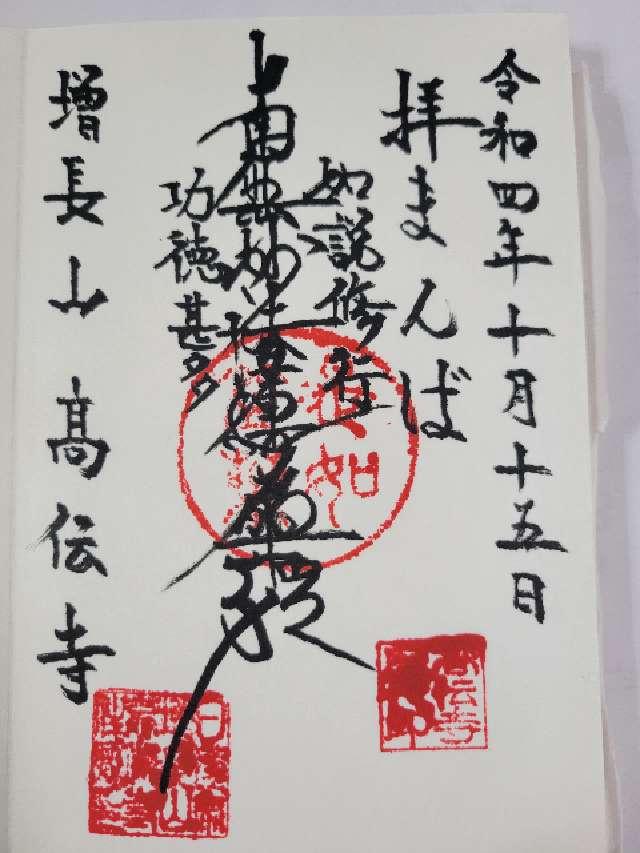 令和四年十月十五日
拝まんば
如説修行
南無妙法蓮華経
功徳甚多
増長山 髙伝寺